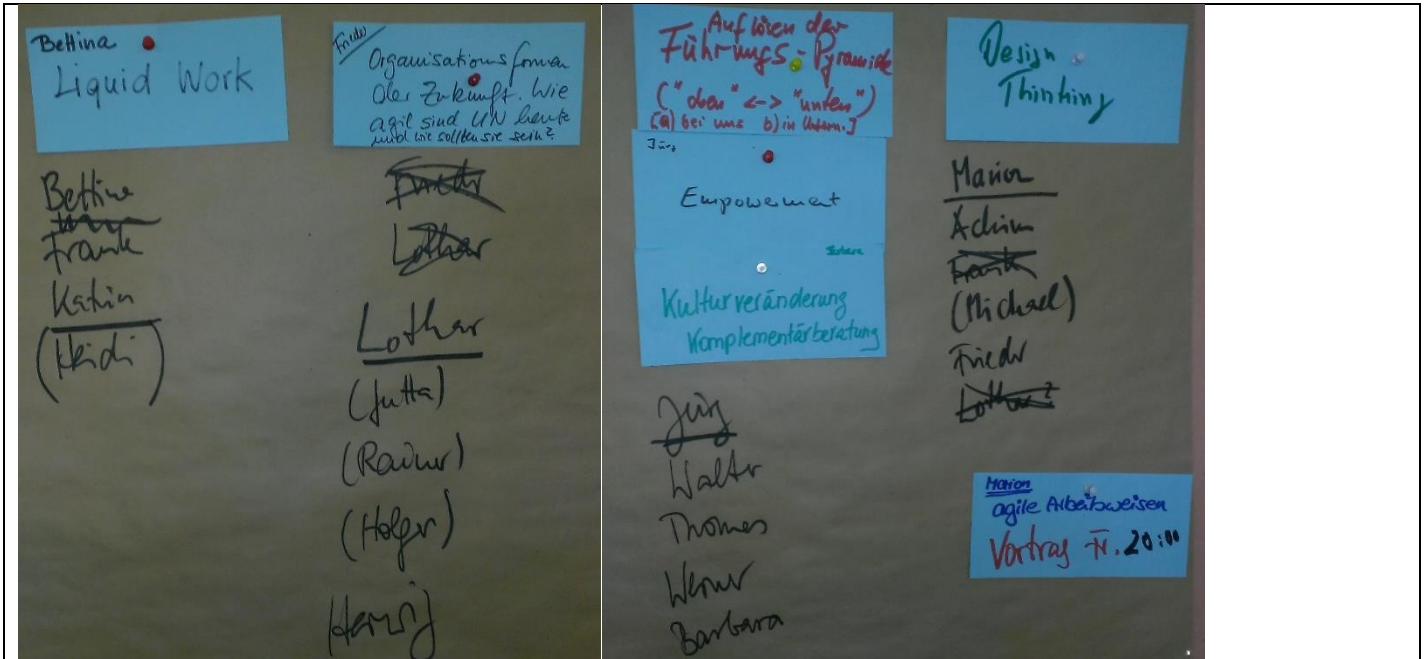 Bettina
Liquid Work
Bettina
Frank
Katrin
(Heidi)
Frieder
Organisationsformen
der Zukunft. Wie
agil sind UN heute
und wie sollten sie sein?
Frieder
Lothar
Lothar
(Jutta)
(Rainer)
(Holger)
Herwig
Auflösen der
Führungs-Pyramide
("oben" <-> "unten")
[a) bei uns b) in Untern.]
Jürg
Empowerment
Barbara
Kulturveränderung
Komplementärberatung
Jürg
Walter
Thomas
Werner
Barbara
Design
Thinking
Marion
Achim
Frank
(Michael)
Frieder
Lothar?
Marion
agile Arbeitsweisen
Vortrag 20:00